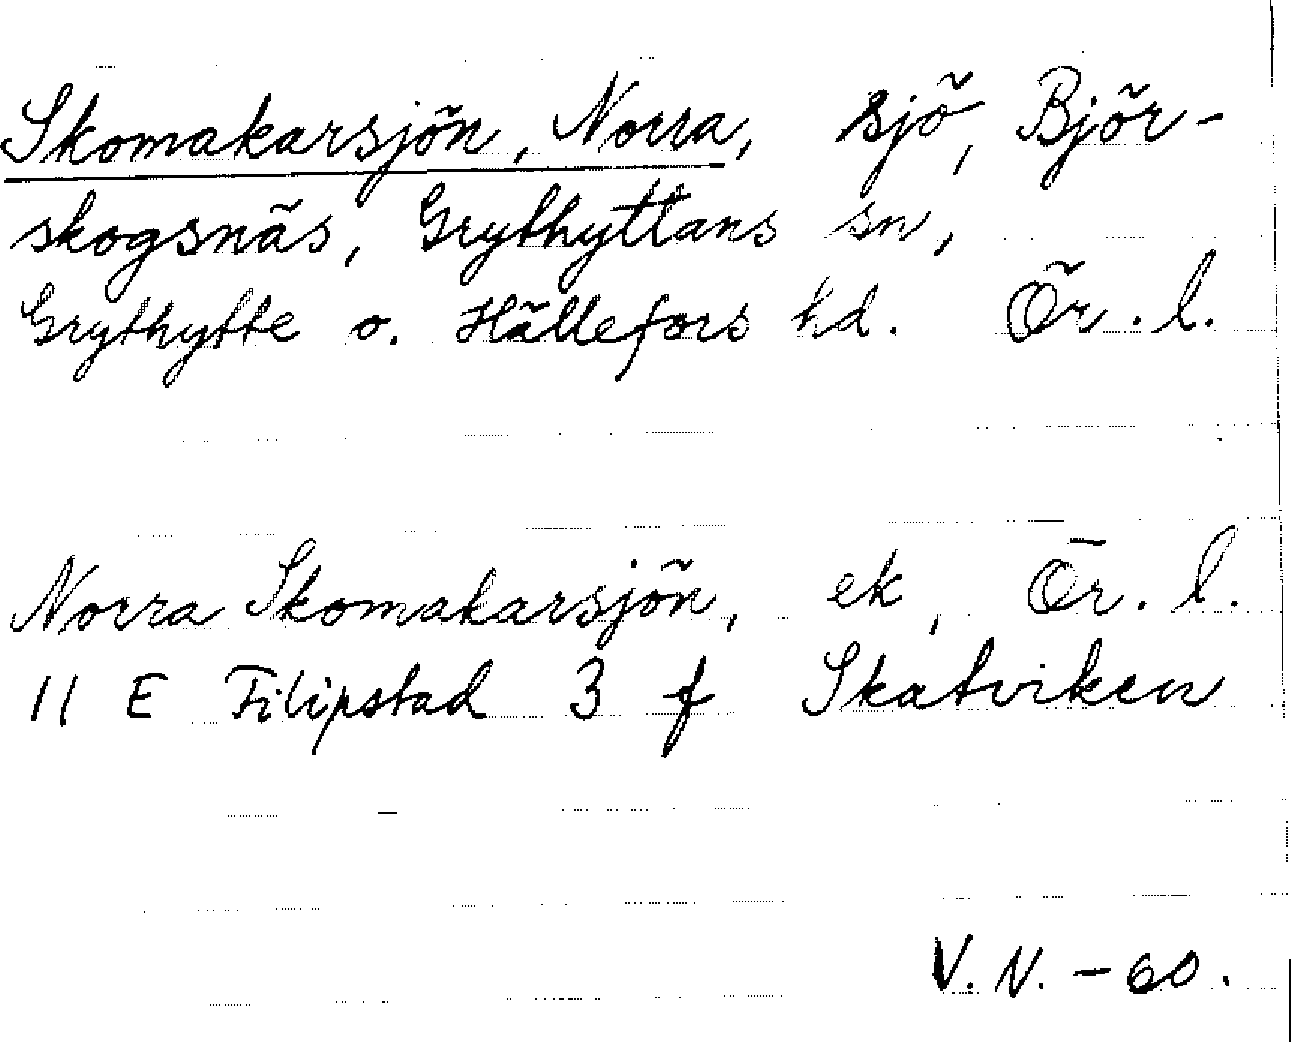 Skomakarsjön, Norra, sjö, Björ-
skogsnäs, Grythyttans sn,
Grythytte o. Hällefors hd. Ör. l.
Norra Skomakarsjön, ek, Ör. l.
11 E Filipstad 3 f Skatviken
V. N. - 60.